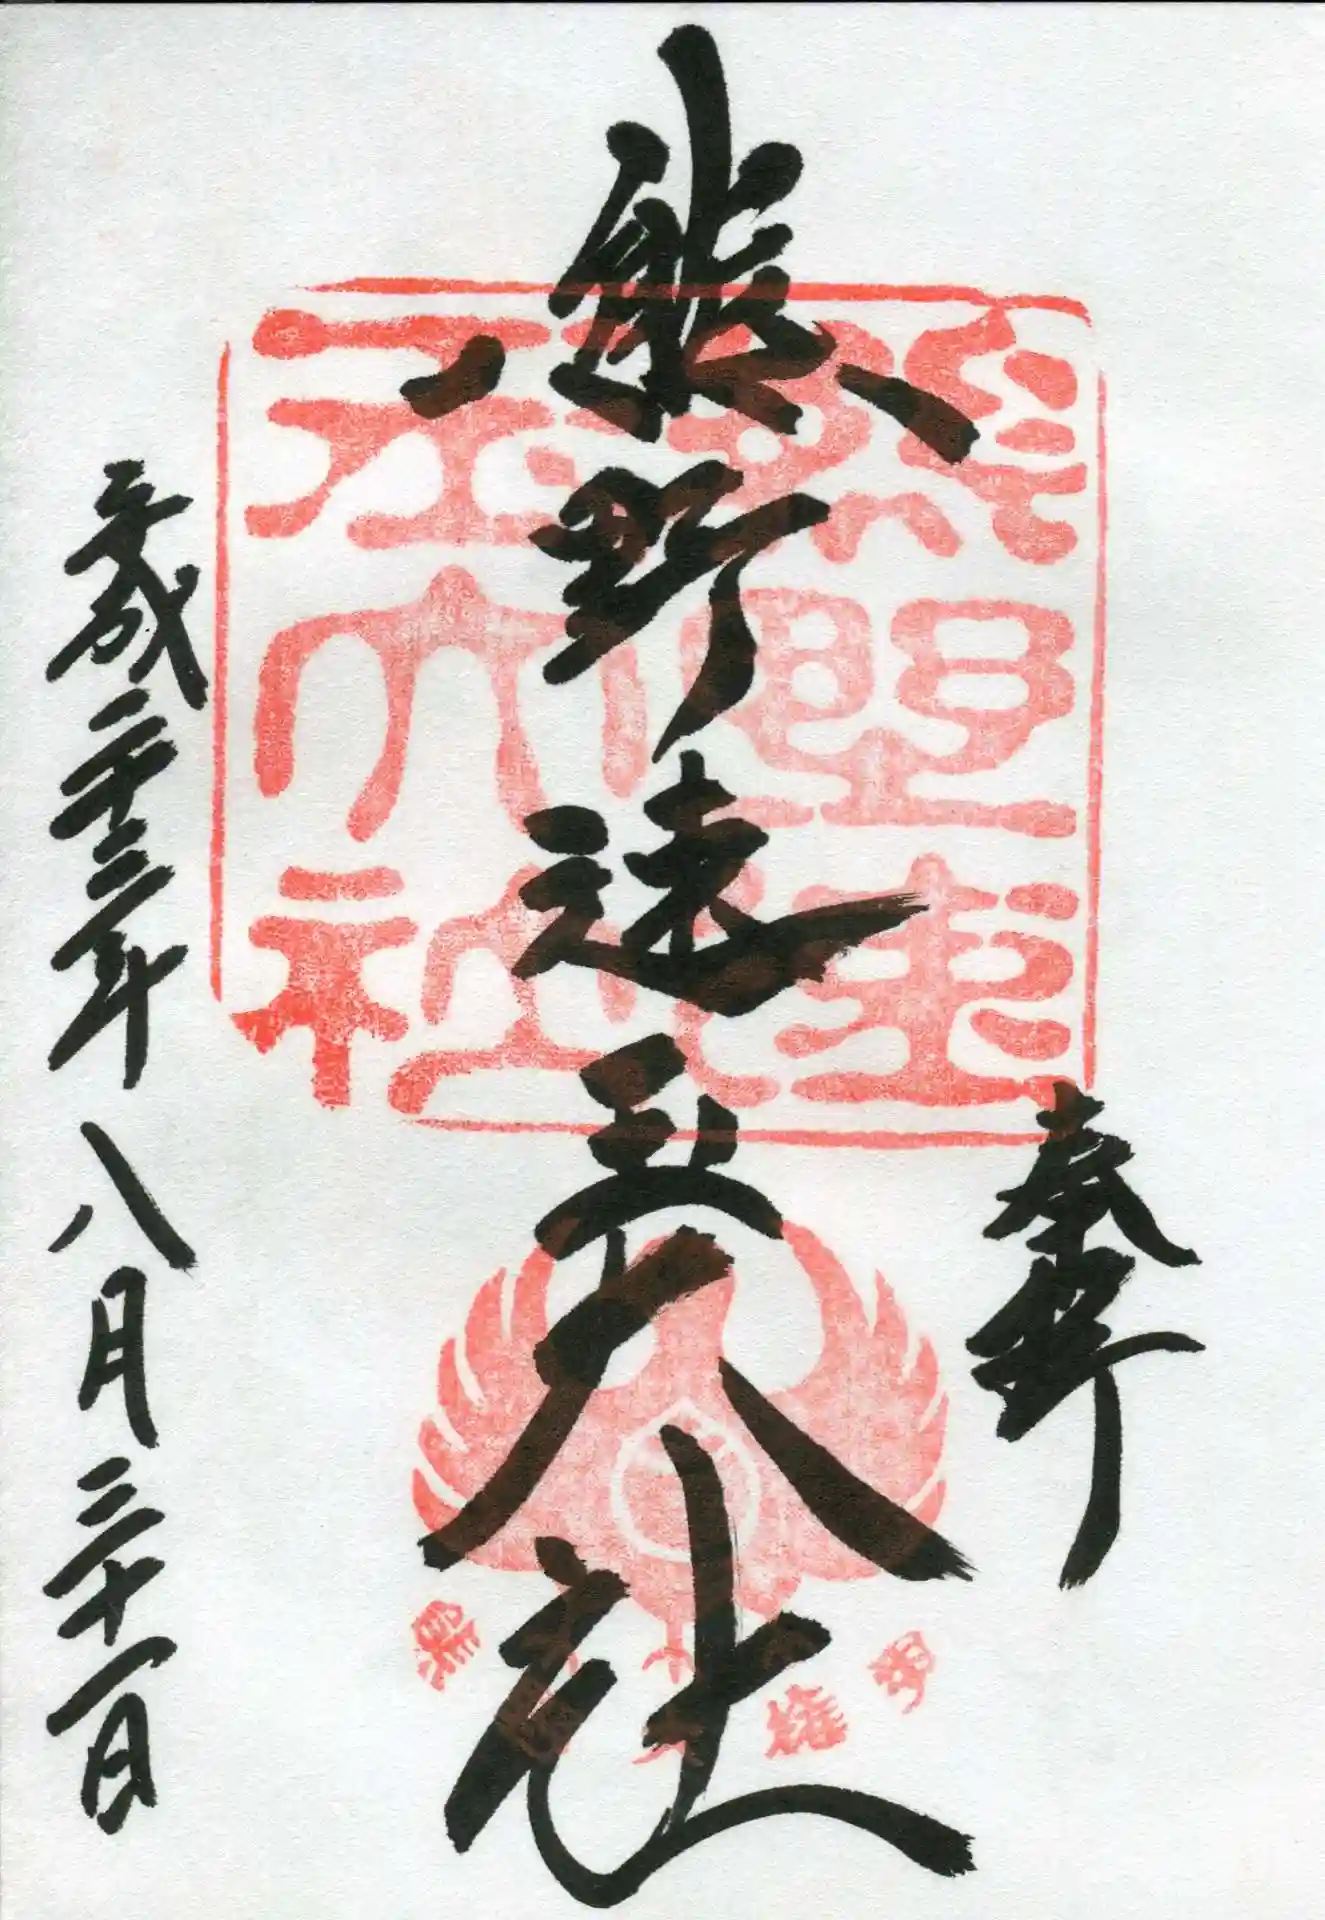 奉拝
熊野速玉大社
平成二十三年八月三十一日
熊野速
玉大社
熊野大権現